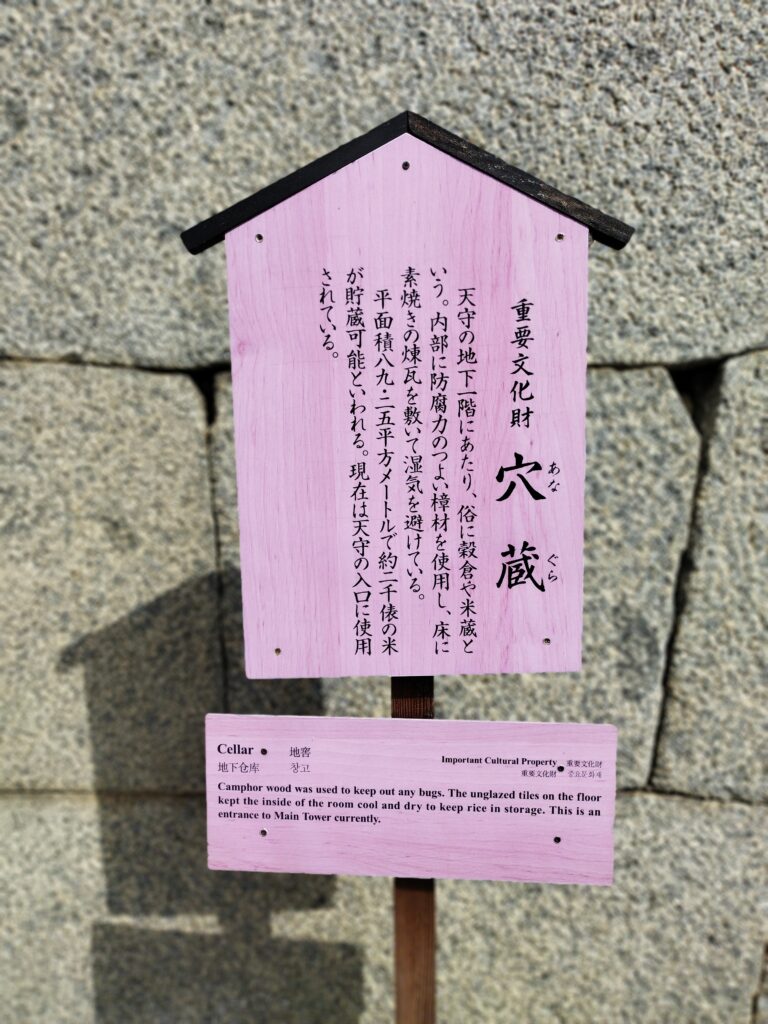 重要文化財 穴蔵
あなぐら
天守の地下一階にあたり、俗に穀倉や米蔵と
いう。内部に防腐力のつよい樟材を使用し、床に
素焼きの煉瓦を敷いて湿気を避けている。
平面積八九・二五平方メートルで約二千俵の米
が貯蔵可能といわれる。現在は天守の入口に使用
されている。
Cellar 地窖
地下仓库 창고
Important Cultural Property 重要文化財
重要文化财 중요문화재
Camphor wood was used to keep out any bugs. The unglazed tiles on the floor
kept the inside of the room cool and dry to keep rice in storage. This is an
entrance to Main Tower currently.